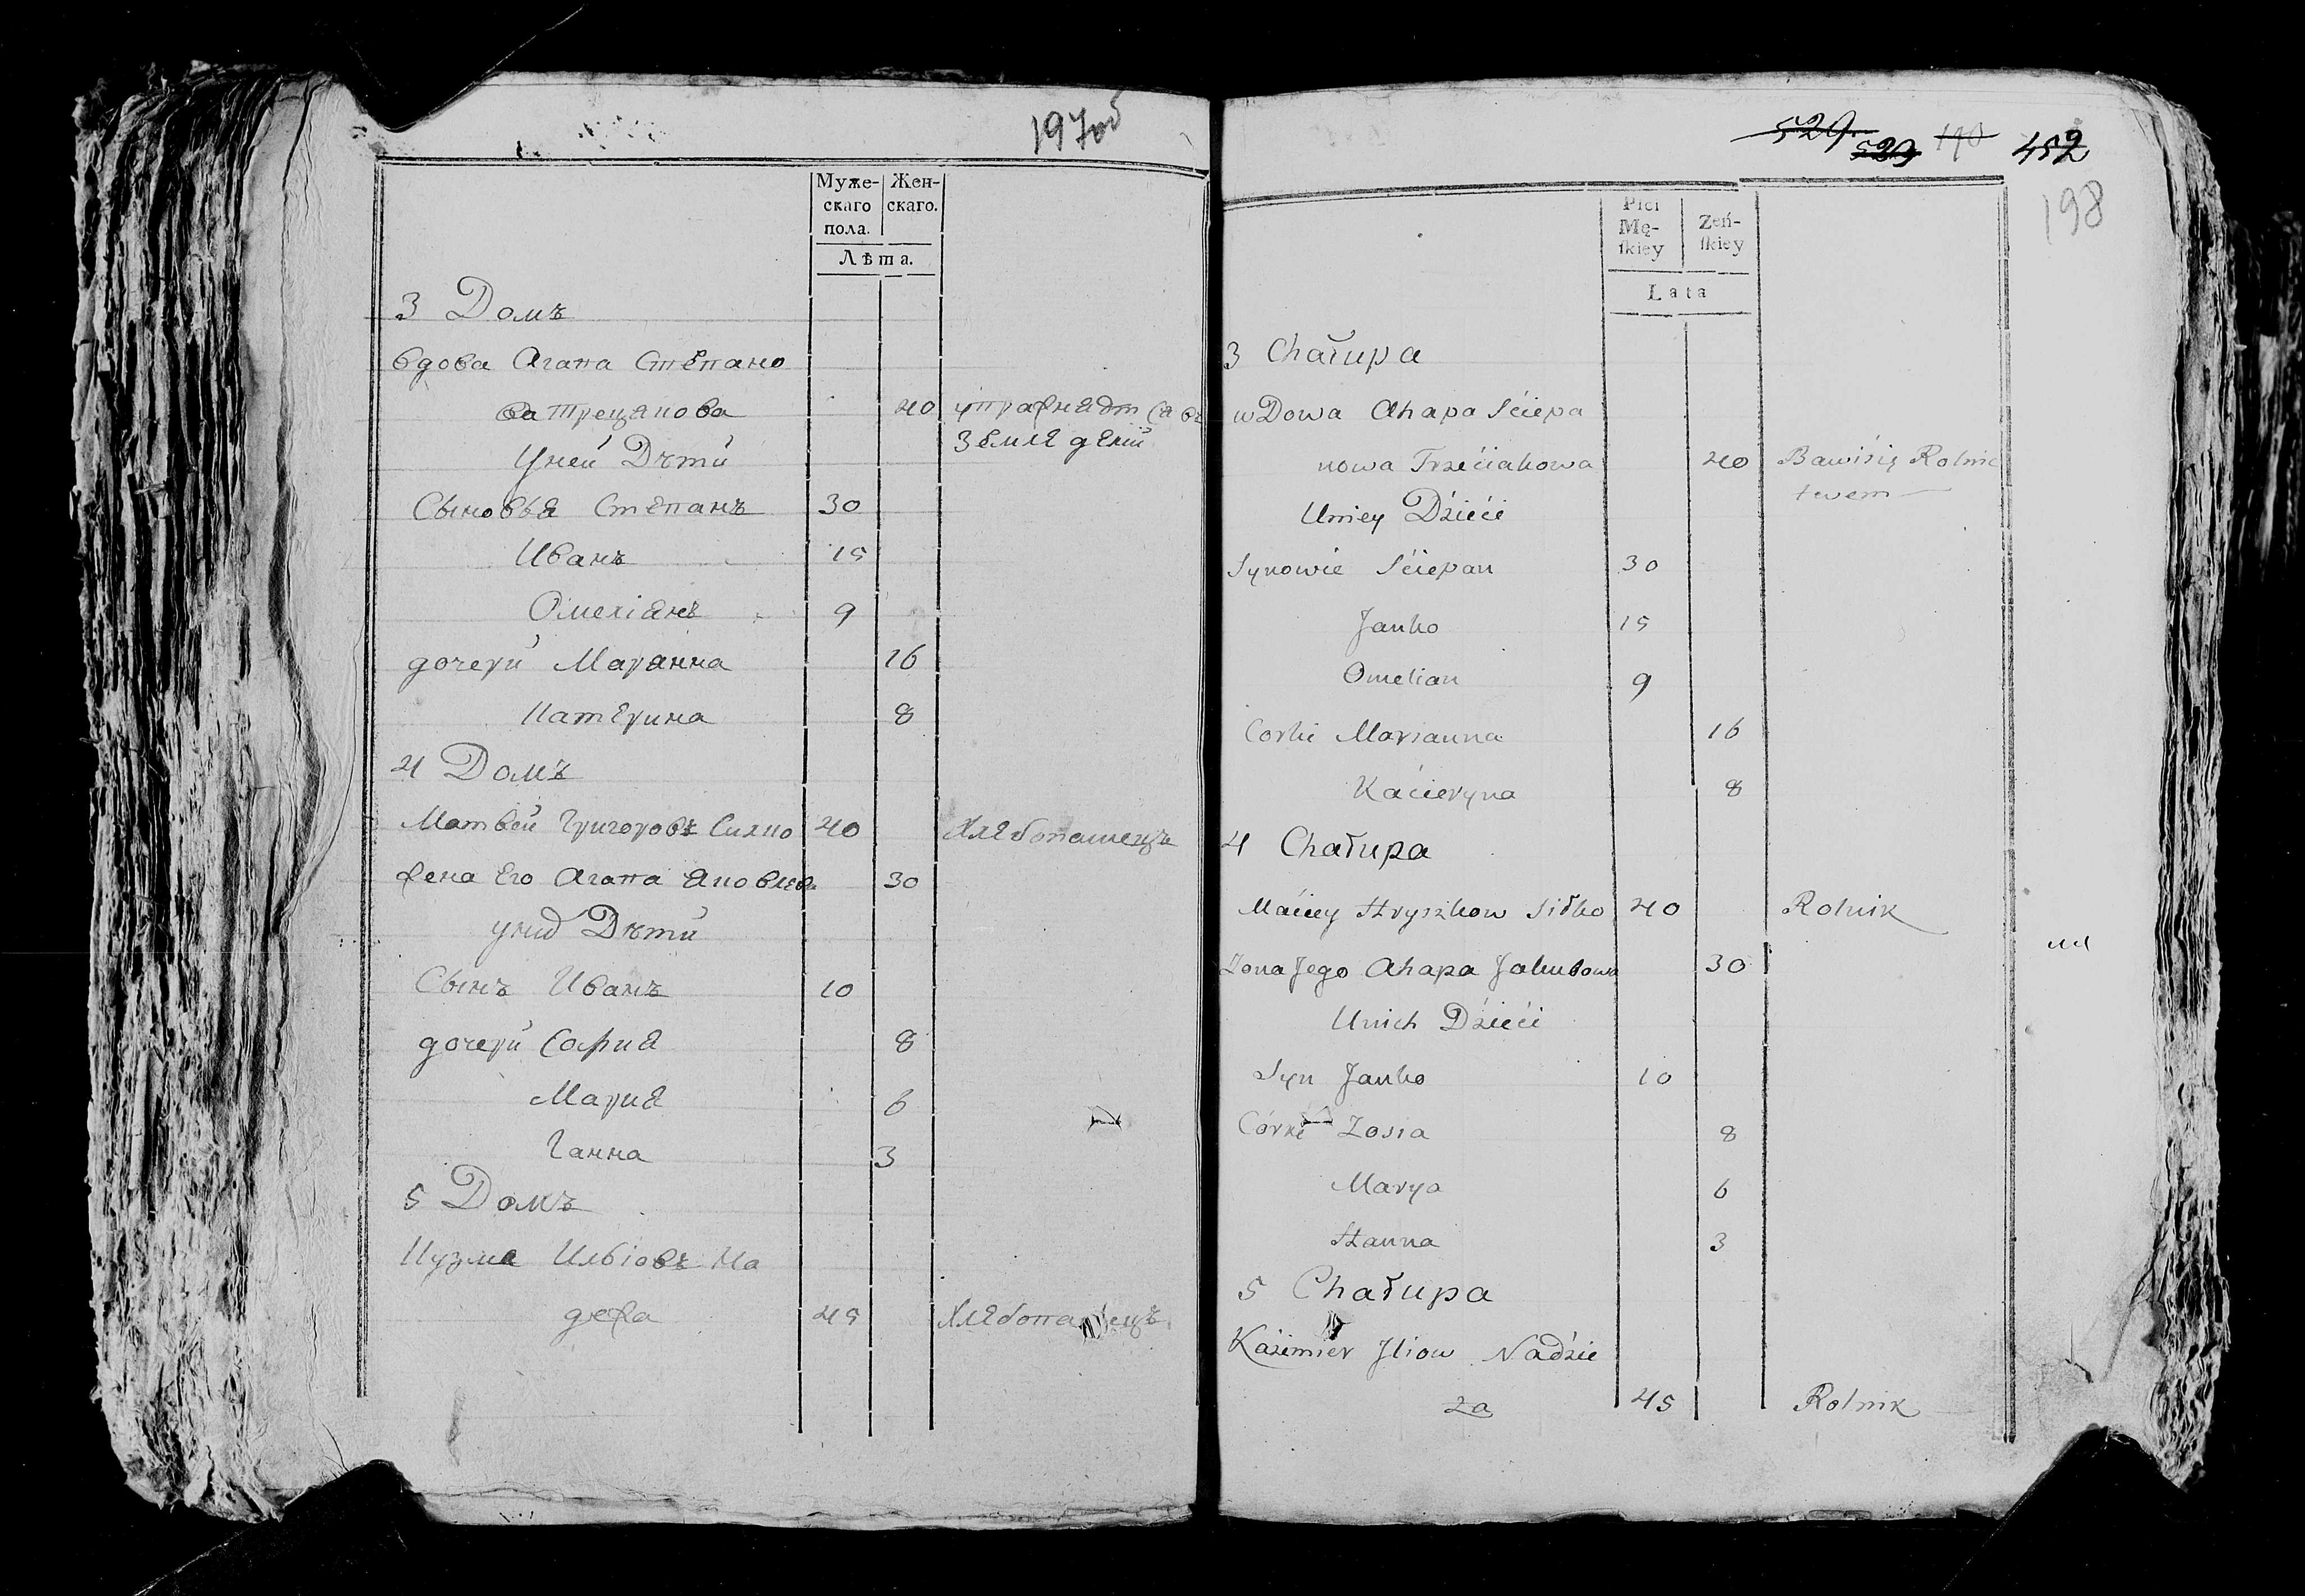 197об
Муже-
скаго
пола.
Жен-
скаго.
Лѣта.
3 Домъ
вдова Агапа Степано
ва Трецякова 40 упражняэтся въ
земледелій
Уней Дѣтй
Сыновья Степанъ 30
Иванъ 15
Омеліянъ 9
дочерй Марянна 16
Катерина 8
4 Домъ
Матвей Григоровъ Силко 40 Хлебопашецъ
жена Его Агапа Яковлева 30
Дѣтй
Сынъ Иванъ 10
дочерй София 8
Мария 6
Ганна 3
5 Домъ
Кузма Ильіовъ На
дежа 45
529
529 190 452
198
Płci
Mę-
ſkiey
Żeń-
ſkiey
Lata
3 Chałupa
wDowa Ahapa Sciepa
nowa Trzeciakowa 40 Bawisię Rolnic
twem
Uniey Dzieci
Synowie Sciepan 30
Janko 15
Omelian 9
Corki Marianna 16
Kacieryna 8
4 Chałupa
Maciey Hryszkow Siłko 40 Rolnik
Zona Jego Ahapa Jakubowa 30
Unich Dzieci
Syn Janko 10
Córki Zosia 8
Marya 6
Hanna 3
5 Chałupa
Kazimier Jliow Nadzie
za 45 Rolnik